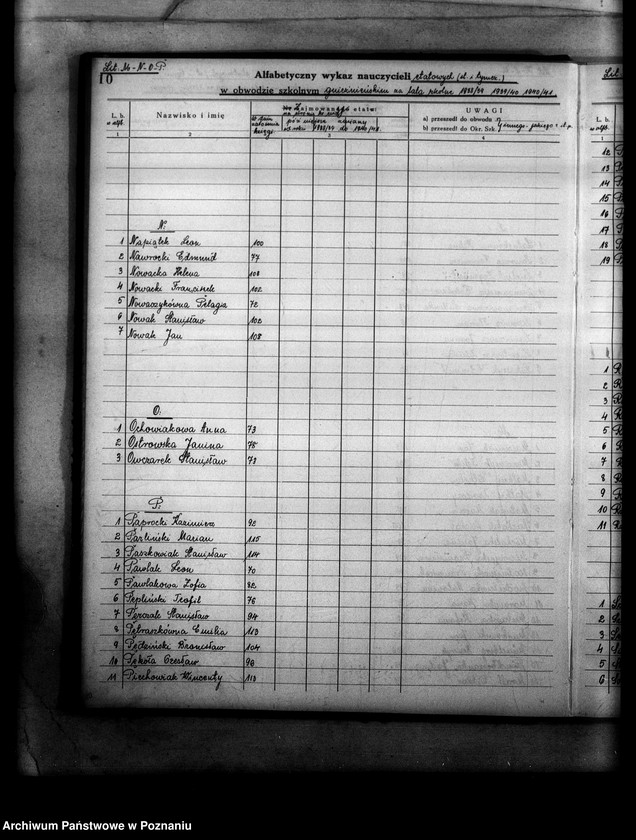 Lit. M-N-O-P.
10
Alfabetyczny wykaz nauczycieli etatowych (st. i tymcz.)
w obwodzie szkolnym gnieźnieńskim na lata szkolne 1938/39 1939/40 1940/41
L. b. w alf.
Nazwisko i imię
UWAGI
a) przeszedł do obwodu
b) przeszedł do Okr. Szk.
1 2 3 4
N:
1 Napiątek Leon 100
2 Nawrocki Edmund 77
3 Nowacka Helena 108
4 Nowacki Franciszek 102
5 Nowaczykówna Pelagia 72
6 Nowak Stanisław 102
7 Nowak Jan 108
O:
1 Ochowiakowa Anna 73
2 Ostrowska Janina 75
3 Owczarek Stanisław 73
P:
1 Paprocki Kazimierz 92
2 Parliński Marian 115
3 Paszkowiak Stanisław 104
4 Pawlak Leon 70
5 Pawlakowa Zofia 82
6 Pepliński Teofil 76
7 Perczak Stanisław 94
8 Petraszkówna Emilia 113
9 Pędziński Bronisław 104
10 Pękała Czesław 98
11 Piechowiak Wincenty 113
Lit
L. b. w alf.
1
12
13
14
15
16
17
18
19
1 R
2 R
3 R
4 R
5 R
6 R
7 R
8 R
9 R
10 R
11 R
1
2
3
4
5
6
Archiwum Państwowe w Poznaniu